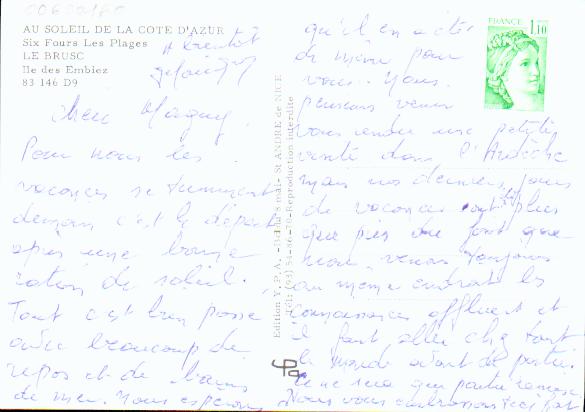 AU SOLEIL DE LA COTE D'AZUR
Six Fours Les Plages
LE BRUSC
Ile des Embiez
83 146 D9
A bientôt
Pour nous les
vacances se terminent
demain c'est le départ
après une bonne
ration de soleil.
Tout c'est bien passé
avec beaucoup de
repos et de bains
de mer. Nous espérons
qu'il en a été
de même pour
vous. Nous
pensions venir
vous rendre une petite
visite dans l'Ardèche
mais nos derniers jours
de vacances sont plus
que pris
nous venons toujours
au même endroit les
connaissances affluent et
il faut aller chez tout
le monde avant de partir.
Ce ne sera que partie remise
Nous vous embrassons
FRANCE
1,10
Edition Y.P.A. - St ANDRE de NICE
Tél: (93) 54-86-70 - Reproduction interdite